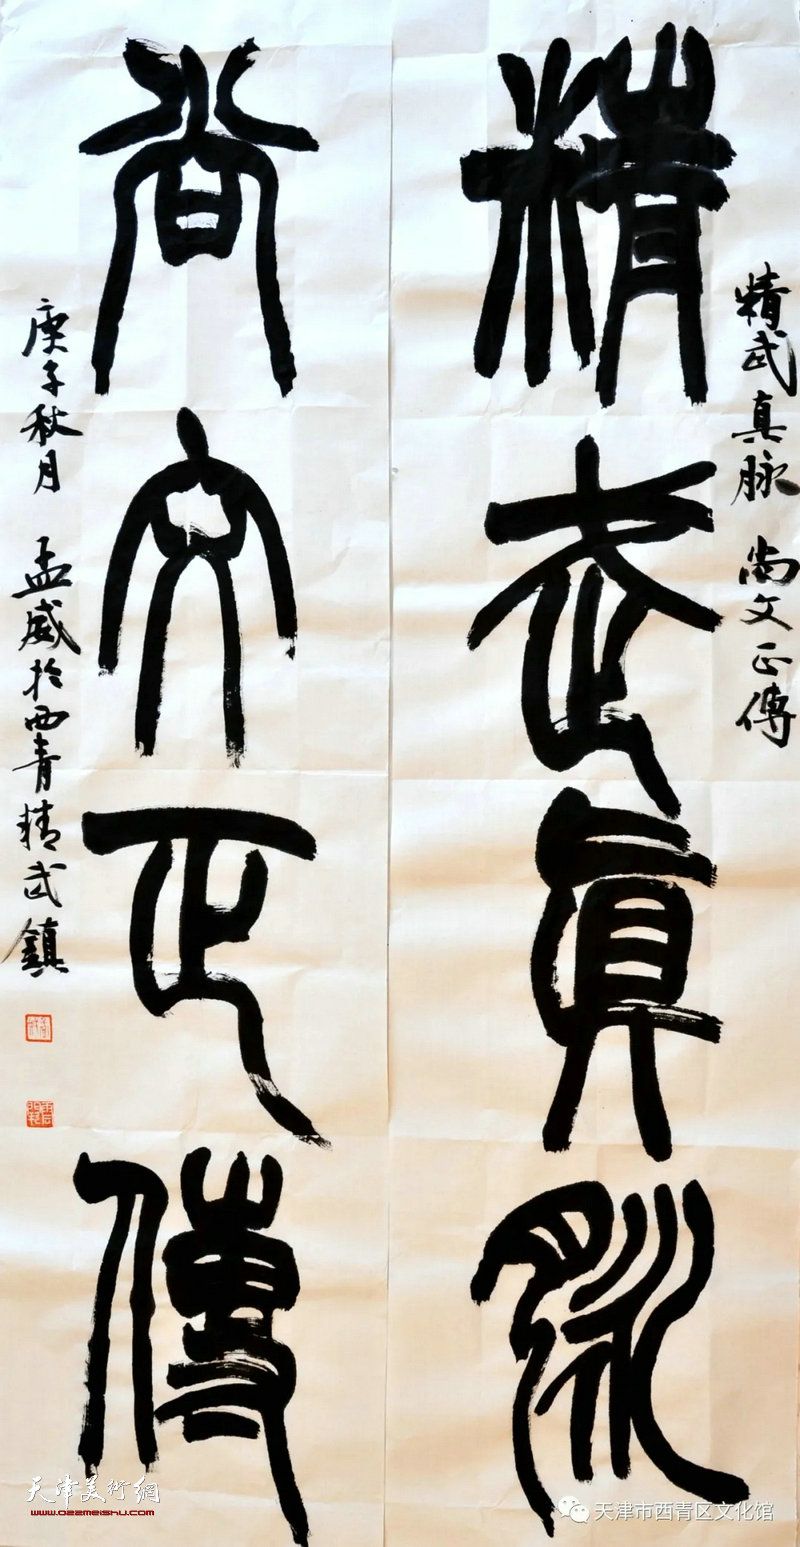 精武真脉 尚文正傳
精武真脉
尚文正傳
庚子秋月 孟威於西青精武鎮
天津美術網
www.022meishu.com
天津市西青区文化馆